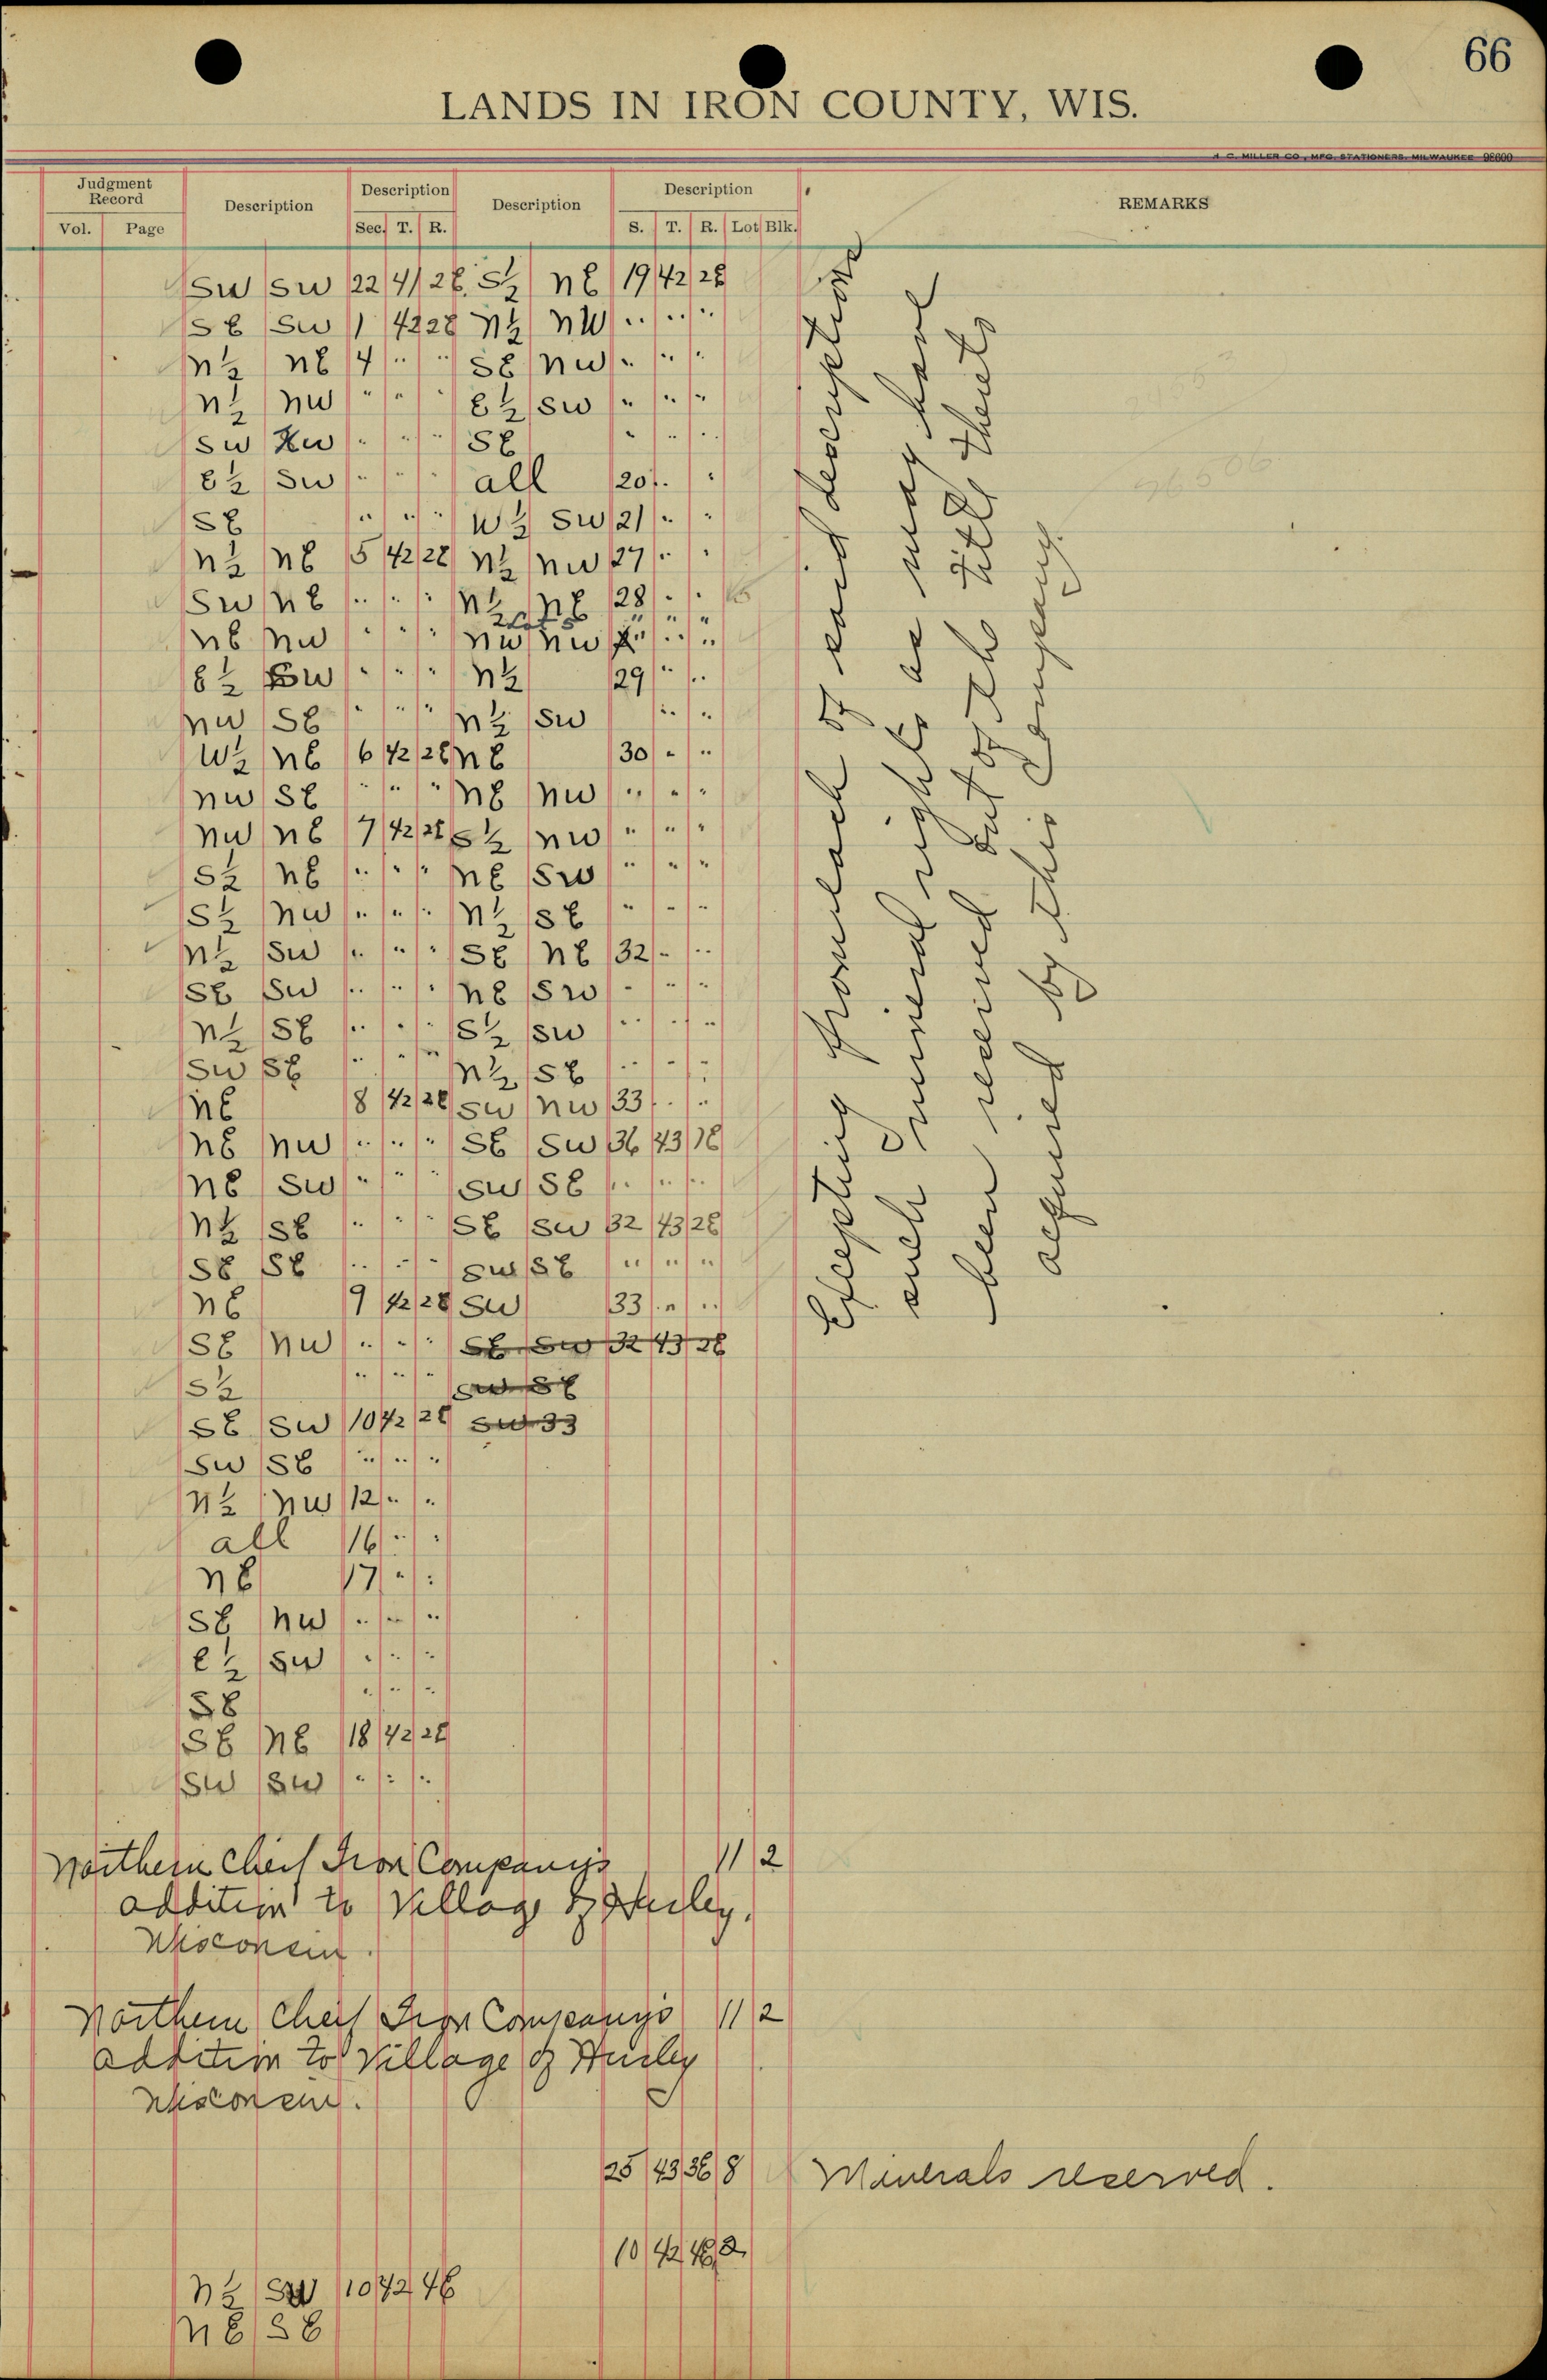 66
LANDS IN IRON COUNTY, WIS.
H. C. MILLER CO., MFG. STATIONERS, MILWAUKEE 98600
Judgment Record Description Description Description Description REMARKS
Vol. Page Sec. T. R. S. T. R. Lot Blk.
SW SW 22 41 2E S½ NE 19 42 2E
SE SW 1 42 2E N½ NW " " "
N½ NE 4 " " SE NW " " "
N½ NW " " " E½ SW " " "
SW NW " " " SE " " "
E½ SW " " " all 20 " "
SE " " " W½ SW 21 " "
N½ NE 5 42 2E N½ NW 27 " "
SW NE " " " N½ NE 28 " "
NE NW " " " NW NW " " "
E½ SW " " " N½ 29 " "
NW SE " " " N½ SW " "
W½ NE 6 42 2E NE 30 " "
NW SE " " " NE NW " " "
NW NE 7 42 2E S½ NW " " "
S½ NE " " " NE SW " " "
S½ NW " " " N½ SE " " "
N½ SW " " " SE NE 32 " "
SE SW " " " NE SW " " "
N½ SE " " " S½ SW " " "
SW SE " " " N½ SE " " "
NE 8 42 2E SW NW 33 " "
NE NW " " " SE SW 36 43 1E
NE SW " " " SW SE " " "
N½ SE " " " SE SW 32 43 2E
SE SE " " " SW SE " " "
NE 9 42 2E SW 33 " "
SE NW " " " SE SW 32 43 2E
S½ " " " SW SE
SE SW 10 42 2E SW 33
SW SE " " "
N½ NW 12 " "
all 16 " "
NE 17 " "
SE NW " " "
E½ SW " " "
SE " " "
SE NE 18 42 2E
SW SW " " "
Excepting from each of said descriptions
such mineral rights as may have
been reserved out of the title thereto
acquired by this Company.
Northern Cheif Iron Company's 11 2
addition to Village of Hurley,
Wisconsin.
Northern Cheif Iron Company's 11 2
addition to Village of Hurley
Wisconsin.
25 43 3E 8 Minerals reserved.
10 42 4E 2
N½ SW 10 42 4E
NE SE